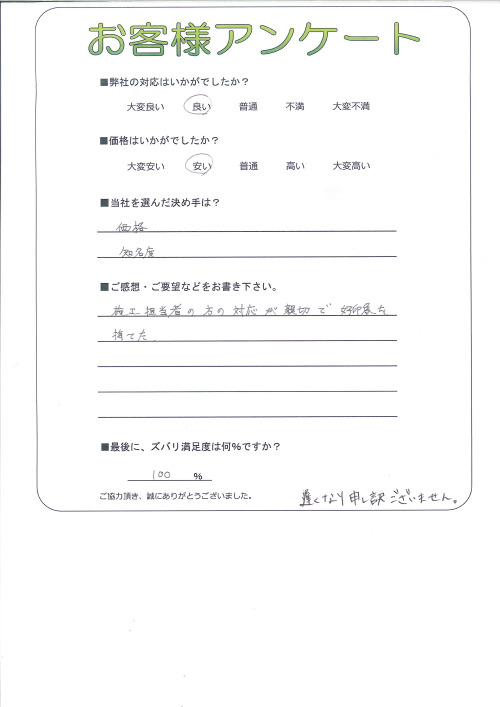 お客様アンケート
■弊社の対応はいかがでしたか？
大変良い 良い 普通 不満 大変不満
■価格はいかがでしたか？
大変安い 安い 普通 高い 大変高い
■当社を選んだ決め手は？
価格
知名度
■ご感想・ご要望などをお書き下さい。
施工担当者の方の対応が親切で好印象を
持てた
■最後に、ズバリ満足度は何%ですか？
100 %
ご協力頂き、誠にありがとうございました。
遅くなり申し訳ございません。